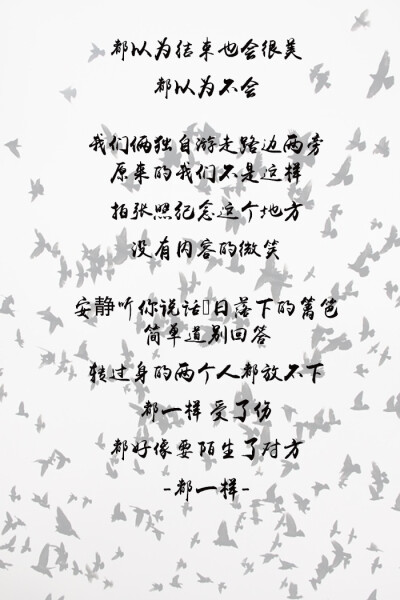 都以为结束也会很美
都以为不会
我们俩独自游走路边两旁
原来的我们不是这样
拍张照纪念这个地方
没有内容的微笑
安静听你说话 日落下的篱笆
简单道别回答
转过身的两个人都放不下
都一样 受了伤
都好像要陌生了对方
-都一样-